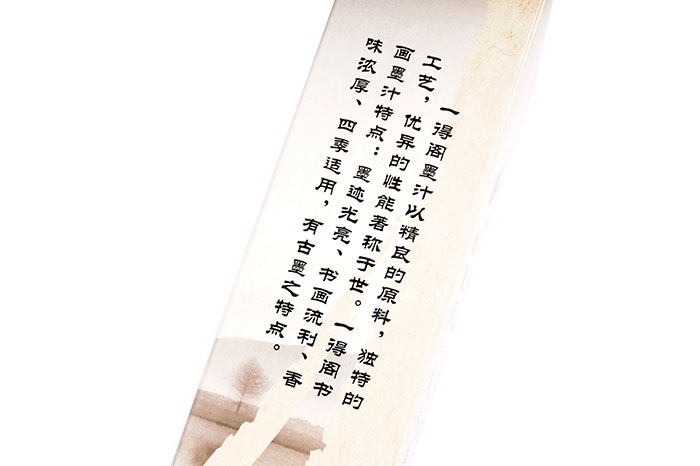 一得阁墨汁以精良的原料，独特的
工艺，优异的性能著称于世。一得阁书
画墨汁特点：墨迹光亮、书画流利、香
味浓厚、四季适用，有古墨之特点。